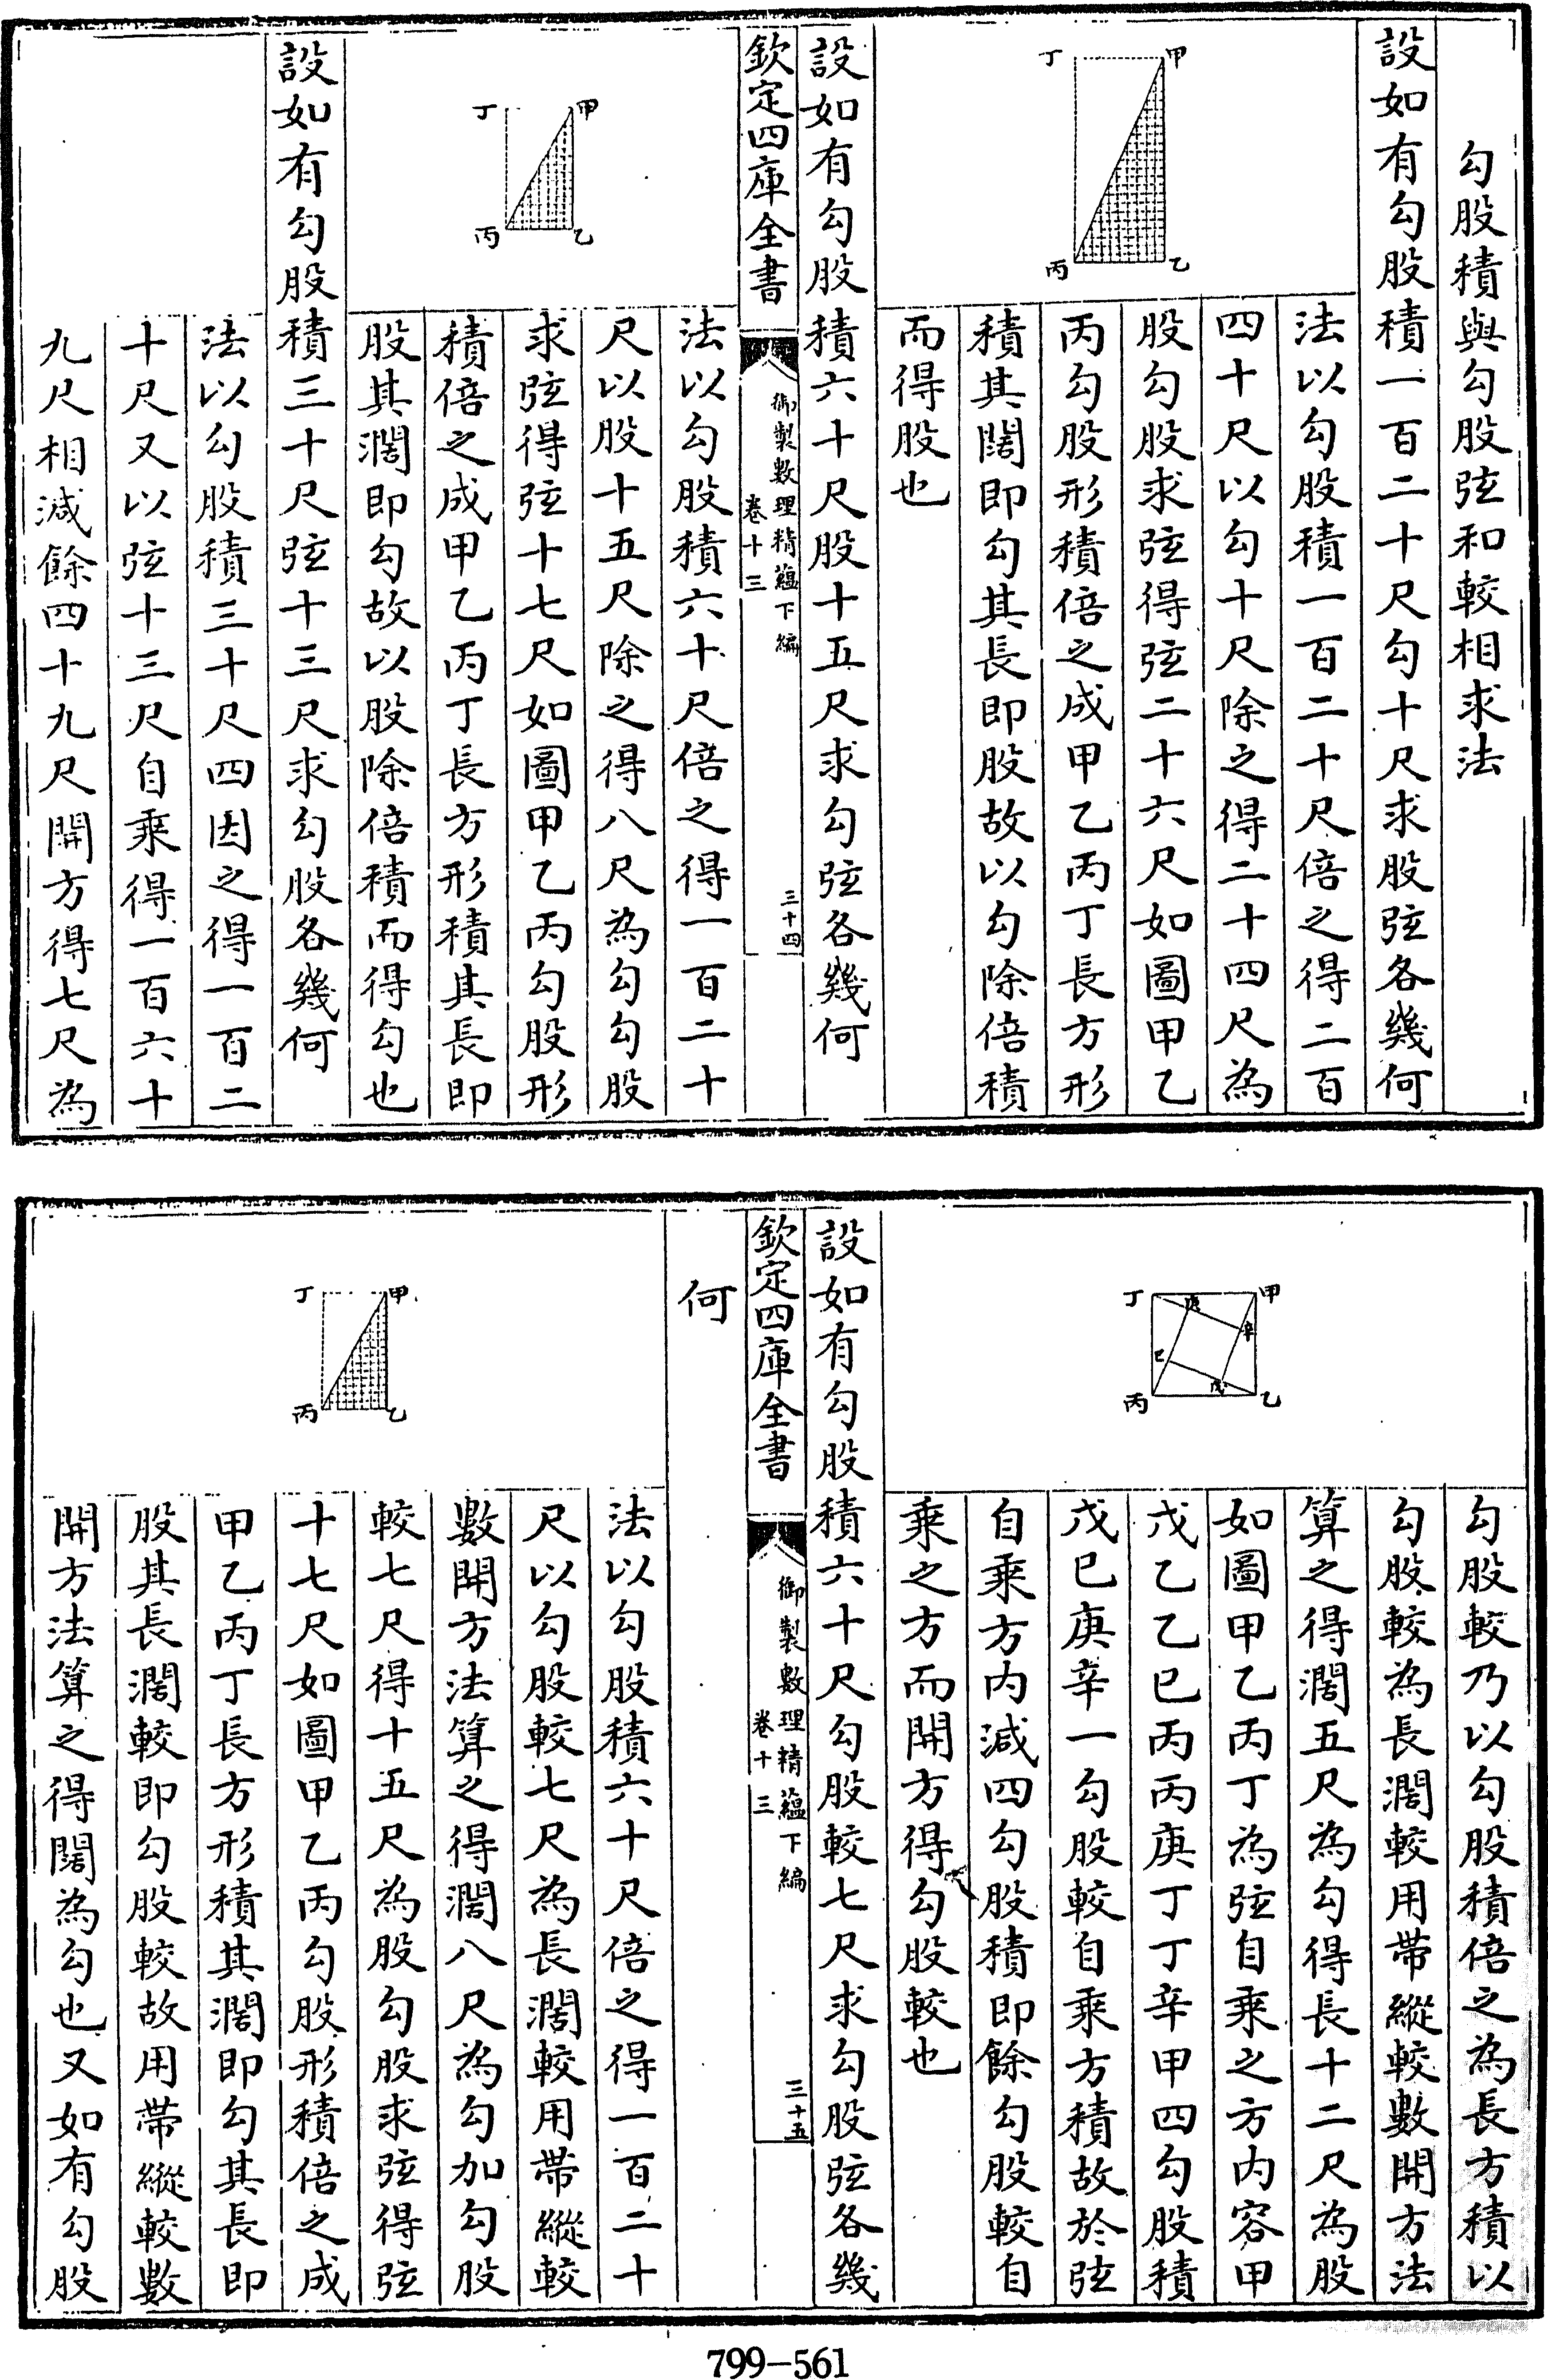 勾股積與勾股弦和較相求法
設如有勾股積一百二十尺勾十尺求股弦各幾何
甲
丁
丙
乙
法以勾股積一百二十尺倍之得二百
四十尺以勾十尺除之得二十四尺為
股勾股求弦得弦二十六尺如圖甲乙
丙勾股形積倍之成甲乙丙丁長方形
積其闊即勾其長即股故以勾除倍積
而得股也
設如有勾股積六十尺股十五尺求勾弦各幾何
欽定四庫全書
御製數理精蘊下編
卷十三
三十四
甲
丁
丙
乙
法以勾股積六十尺倍之得一百二十
尺以股十五尺除之得八尺為勾勾股
求弦得弦十七尺如圖甲乙丙勾股形
積倍之成甲乙丙丁長方形積其長即
股其濶即勾故以股除倍積而得勾也
設如有勾股積三十尺弦十三尺求勾股各幾何
法以勾股積三十尺四因之得一百二
十尺又以弦十三尺自乘得一百六十
九尺相減餘四十九尺開方得七尺為
甲
丁
庚
辛
己
戊
丙
乙
勾股較乃以勾股積倍之為長方積以
勾股較為長濶較用帶縱較數開方法
算之得濶五尺為勾得長十二尺為股
如圖甲乙丙丁為弦自乘之方內容甲
戊乙乙巳丙丙庚丁丁辛甲四勾股積
戊巳庚辛一勾股較自乘方積故於弦
自乘方内減四勾股積即餘勾股較自
乘之方而開方得勾股較也
設如有勾股積六十尺勾股較七尺求勾股弦各幾
欽定四庫全書
御製數理精蘊下編
卷十三
三十五
何
甲
丁
丙
乙
法以勾股積六十尺倍之得一百二十
尺以勾股較七尺為長濶較用帶縱較
數開方法算之得濶八尺為勾加勾股
較七尺得十五尺為股勾股求弦得弦
十七尺如圖甲乙丙勾股形積倍之成
甲乙丙丁長方形積其濶即勾其長即
股其長濶較即勾股較故用帶縱較數
開方法算之得闊為勾也又如有勾股
799-561